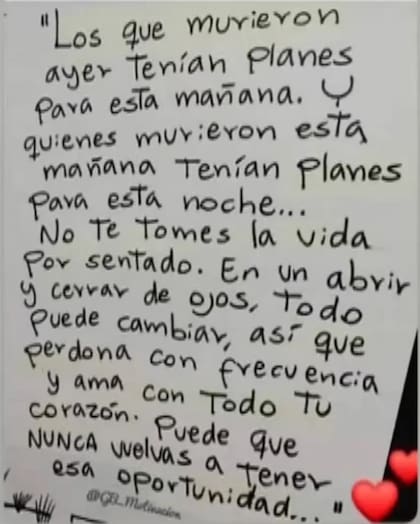 "Los que murieron
ayer Tenían Planes
Para esta mañana. Y
quienes murieron esta
mañana Tenían Planes
Para esta noche...
No Te Tomes la vida
Por sentado. En un abrir
y cerrar de ojos, Todo
Puede cambiar, así que
Perdona con frecuencia
y ama con Todo Tu
corazón. Puede que
NUNCA vuelvas a Tener
esa oportunidad..."
@GB_Motivacion